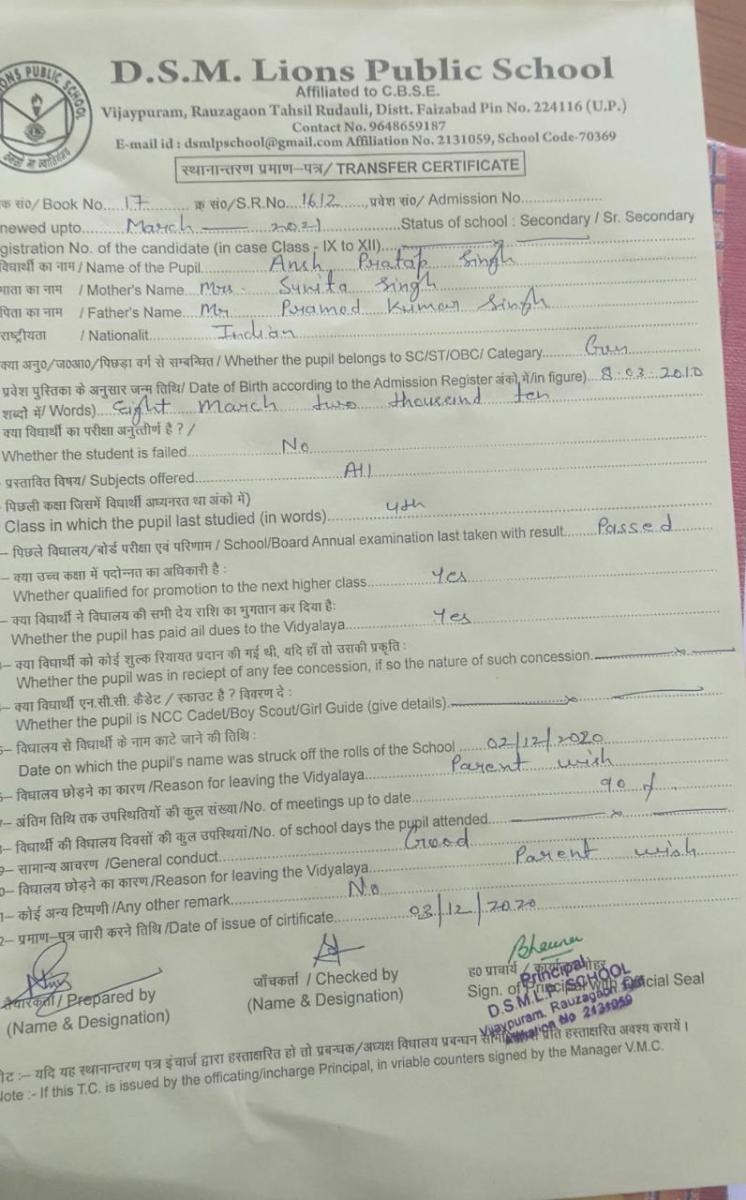 IONS PUBLIC SCHOOL
D.S.M. Lions Public School
Affiliated to C.B.S.E.
Vijaypuram, Rauzagaon Tahsil Rudauli, Distt. Faizabad Pin No. 224116 (U.P.)
Contact No. 9648659187
E-mail id : dsmlpschool@gmail.com Affiliation No. 2131059, School Code-70369
स्थानान्तरण प्रमाण-पत्र/ TRANSFER CERTIFICATE
क सं०/ Book No.....17.... क्र सं०/S.R.No....1612....,प्रवेश सं०/ Admission No.............
newed upto......March — 2021..........Status of school : Secondary / Sr. Secondary
gistration No. of the candidate (in case Class - IX to XII)..............
विद्यार्थी का नाम / Name of the Pupil............Ansh Pratap Singh
माता का नाम / Mother's Name ..Mrs. Sunita Singh
पिता का नाम / Father's Name ..Mr. Pramod Kumar Singh
राष्ट्रीयता / Nationalit............Indian
क्या अनु०/ज०आ०/पिछड़ा वर्ग से सम्बन्धित / Whether the pupil belongs to SC/ST/OBC/ Categary........Gen
प्रवेश पुस्तिका के अनुसार जन्म तिथि/ Date of Birth according to the Admission Register अंको में/in figure)...8.03.2010
शब्दो में/ Words)...Eight March two thousand ten
क्या विद्यार्थी का परीक्षा अनुत्तीर्ण है ? /
Whether the student is failed..............No
प्रस्तावित विषय/ Subjects offered..............All
पिछली कक्षा जिसमें विद्यार्थी अध्यनरत था अंको में)
Class in which the pupil last studied (in words)............4th
– पिछले विद्यालय/बोर्ड परीक्षा एवं परिणाम / School/Board Annual examination last taken with result........Passed
– क्या उच्च कक्षा में पदोन्नत का अधिकारी है :
Whether qualified for promotion to the next higher class............Yes
– क्या विद्यार्थी ने विद्यालय की सभी देय राशि का भुगतान कर दिया है:
Whether the pupil has paid ail dues to the Vidyalaya............Yes
– क्या विद्यार्थी को कोई शुल्क रियायत प्रदान की गई थी, यदि हाँ तो उसकी प्रकृति :
Whether the pupil was in reciept of any fee concession, if so the nature of such concession.
– क्या विद्यार्थी एन.सी.सी. कैडेट / स्काउट है ? विवरण दे :
Whether the pupil is NCC Cadet/Boy Scout/Girl Guide (give details).
– विद्यालय से विद्यार्थी के नाम काटे जाने की तिथि :
Date on which the pupil's name was struck off the rolls of the School ....02/12/2020
– विद्यालय छोड़ने का कारण /Reason for leaving the Vidyalaya............Parent wish
– अंतिम तिथि तक उपस्थितियों की कुल संख्या/No. of meetings up to date............90
– विद्यार्थी की विद्यालय दिवसों की कुल उपस्थियां/No. of school days the pupil attended............
– सामान्य आचरण /General conduct............Good
– विद्यालय छोड़ने का कारण /Reason for leaving the Vidyalaya............Parent wish
– कोई अन्य टिप्पणी /Any other remark............No
– प्रमाण-पत्र जारी करने तिथि /Date of issue of cirtificate............03/12/2020
तैयारकर्ता / Prepared by
(Name & Designation)
जाँचकर्ता / Checked by
(Name & Designation)
ह० प्राचार्य /
Sign. of Principal with Official Seal
Principal
D.S.M.L.P. SCHOOL
Vijaypuram, Rauzagaon
No 2131059
नोट :– यदि यह स्थानान्तरण पत्र इंचार्ज द्वारा हस्ताक्षरित हो तो प्रबन्धक/अध्यक्ष विद्यालय प्रबन्धन प्रति हस्ताक्षरित अवश्य करायें ।
Note :- If this T.C. is issued by the officating/incharge Principal, in vriable counters signed by the Manager V.M.C.